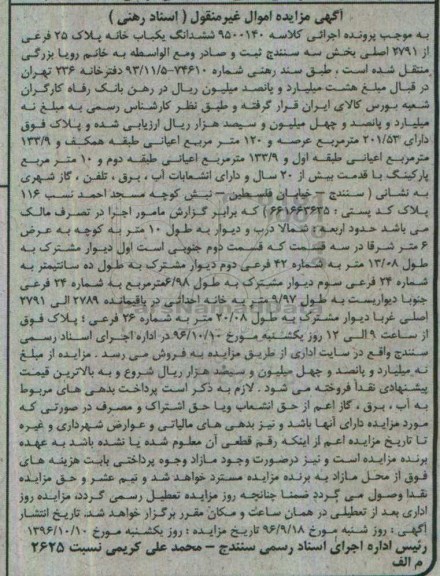 آگهی مزایده اموال غیرمنقول ( اسناد رهنی )
به موجب پرونده اجرائی کلاسه ۹۵۰۰۱۴۰ ششدانگ یکباب خانه پلاک ۲۵ فرعی
از ۲۷۹۱ اصلی بخش سه سنندج ثبت و صادر ومع الواسطه به خانم رویا بزرگی
منتقل شده است ، طبق سند رهنی شماره ۷۴۶۱۰-۹۳/۱۱/۵ دفترخانه ۲۳۶ تهران
در قبال مبلغ هشت میلیارد و پانصد میلیون ریال در رهن بانک رفاه کارگران
شعبه بورس کالای ایران قرار گرفته و طبق نظر کارشناس رسمی به مبلغ نه
میلیارد و پانصد و چهل میلیون و سیصد هزار ریال ارزیابی شده و پلاک فوق
دارای ۲۰۱/۵۳ مترمربع عرصه و ۱۲۰ متر مربع اعیانی طبقه همکف و ۱۳۳/۹
مترمربع اعیانی طبقه اول و ۱۳۳/۹ مترمربع اعیانی طبقه دوم و ۱۰ متر مربع
پارکینگ با قدمت بیش از ۲۰ سال و دارای انشعابات آب ، برق ، تلفن ، گاز شهری
به نشانی ( سنندج – خیابان فلسطین – نبش کوچه مسجد احمد نسب ۱۱۶
پلاک کد پستی : ۶۶۱۶۶۳۶۳۵ ) که برابر گزارش مامور اجرا در تصرف مالک
می باشد حدود اربعه : شمالا درب و دیوار به طول ۱۰ متر به کوچه به عرض
۶ متر شرقا در سه قسمت که قسمت دوم جنوبی است اول دیوار مشترک به
طول ۱۳/۰۸ متر به شماره ۴۲ فرعی دوم دیوار مشترک به طول ده سانتیمتر به
شماره ۲۴ فرعی سوم دیوار مشترک به طول ۶/۹۸ مترمربع به شماره ۲۴ فرعی
جنوبا دیواریست به طول ۹/۹۷ متر به خانه احداثی در باقیمانده ۲۷۸۹ الی ۲۷۹۱
اصلی غربا دیوار مشترک به طول ۲۰/۰۸ متر به شماره ۲۶ فرعی ؛ پلاک فوق
از ساعت ۹ الی ۱۲ روز یکشنبه مورخ ۹۶/۱۰/۱۰ در اداره اجرای اسناد رسمی
سنندج واقع در سایت اداری از طریق مزایده به فروش می رسد . مزایده از مبلغ
نه میلیارد و پانصد و چهل میلیون و سیصد هزار ریال شروع و به بالاترین قیمت
پیشنهادی نقدا فروخته می شود . لازم به ذکر است پرداخت بدهی های مربوط
به آب ، برق ، گاز اعم از حق انشعاب ویا حق اشتراک و مصرف در صورتی که
مورد مزایده دارای آنها باشد و نیز بدهی های مالیاتی و عوارض شهرداری و غیره
تا تاریخ مزایده اعم از اینکه رقم قطعی آن معلوم شده یا نشده باشد به عهده
برنده مزایده است و نیز درصورت وجود مازاد وجوه پرداختی بابت هزینه های
فوق از محل مازاد به برنده مزایده مسترد خواهد شد و نیم عشر و حق مزایده
نقدا وصول می گردد ضمنا چنانچه روز مزایده تعطیل رسمی گردد، مزایده روز
اداری بعد از تعطیلی در همان ساعت و مکان مقرر برگزار خواهد شد. تاریخ انتشار
آگهی : روز شنبه مورخ ۹۶/۹/۱۸ تاریخ مزایده : روز یکشنبه مورخ ۱۳۹۶/۱۰/۱۰
رئیس اداره اجرای اسناد رسمی سنندج – محمد علی کریمی نسبت ۲۶۲۵
م الف